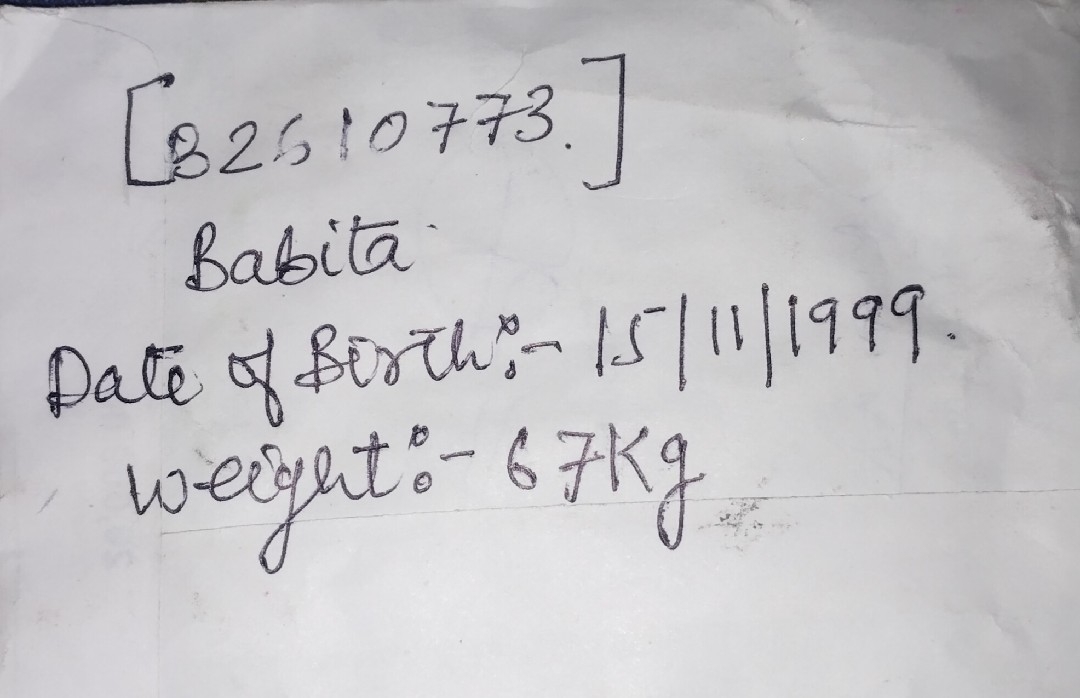 [B2610773.]
Babita
Date of Birth:- 15/11/1999.
Weight:- 67Kg